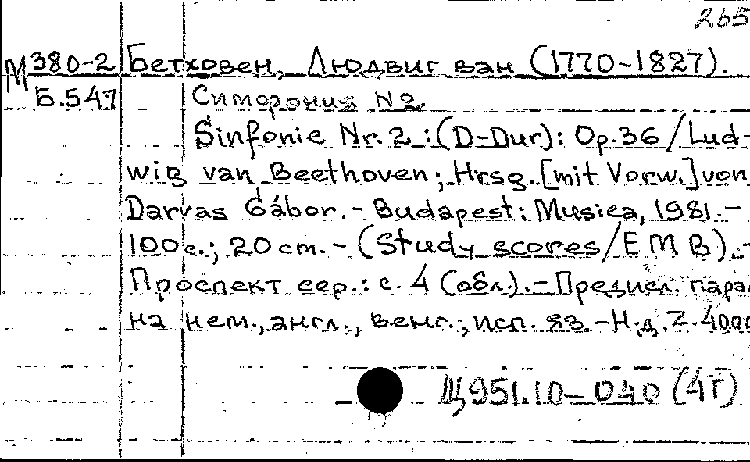 265
М380-2 Бетховен, Людвиг ван (1770-1827).
Б.547 Симфония N2.
Sinfonie Nr. 2 : (D-Dur): Op.36 / Lud-
wig van Beethoven; Hrsg. [mit Vorw.] von
Darvas Gábor. - Budapest: Musica, 1981. -
100 с.; 20 cm. - (Study scores/E M B). -
Проспект сер.: с. 4 (обл.). - Предисл. пара
на нем., англ., венг., исп. яз. - Н.д. Z. 4000
Ц951.10-040 (4Г)